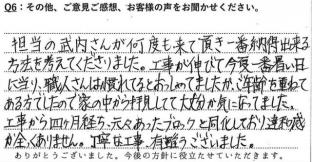 Q6：その他、ご意見ご感想、お客様の声をお聞かせください。
担当の武内さんが何度も来て頂き一番納得出来る
方法を考えてくださいました。工事が伸びて今夏一番暑い日
に当り、職人さんは慣れてるとおっしゃてましたが、ご年齢を重ねて
ある方でしたので家の中から拝見してて大分気になってました。
工事から四ヶ月経ち、元々あったブロックと同化しており違和感
が全くありません。丁寧な工事、有難うございました。
ありがとうございました。今後の方針に役立たせていただきます。